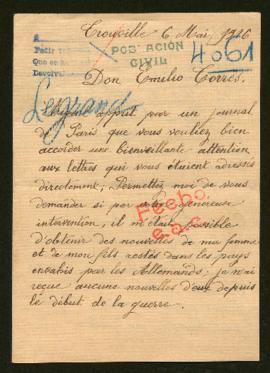 Trouville 6 Mai, 1916
A
Pedir
Que se
Devolver
POBLACIÓN
CIVIL
4061
Don Emilio Torres.
Legrand
appris par un journal
de Paris que vous vouliez bien
accorder une bienveillante attention
aux lettres qui vous étaient adressées
directement, Permettez moi de vous
demander si par votre généreuse
intervention, il m'était possible
d'obtenir des nouvelles de ma femme
et de mon fils restés dans les pays
envahis par les Allemands; je n'ai
reçue aucune nouvelles d'eux depuis
le début de la guerre.
Fecho